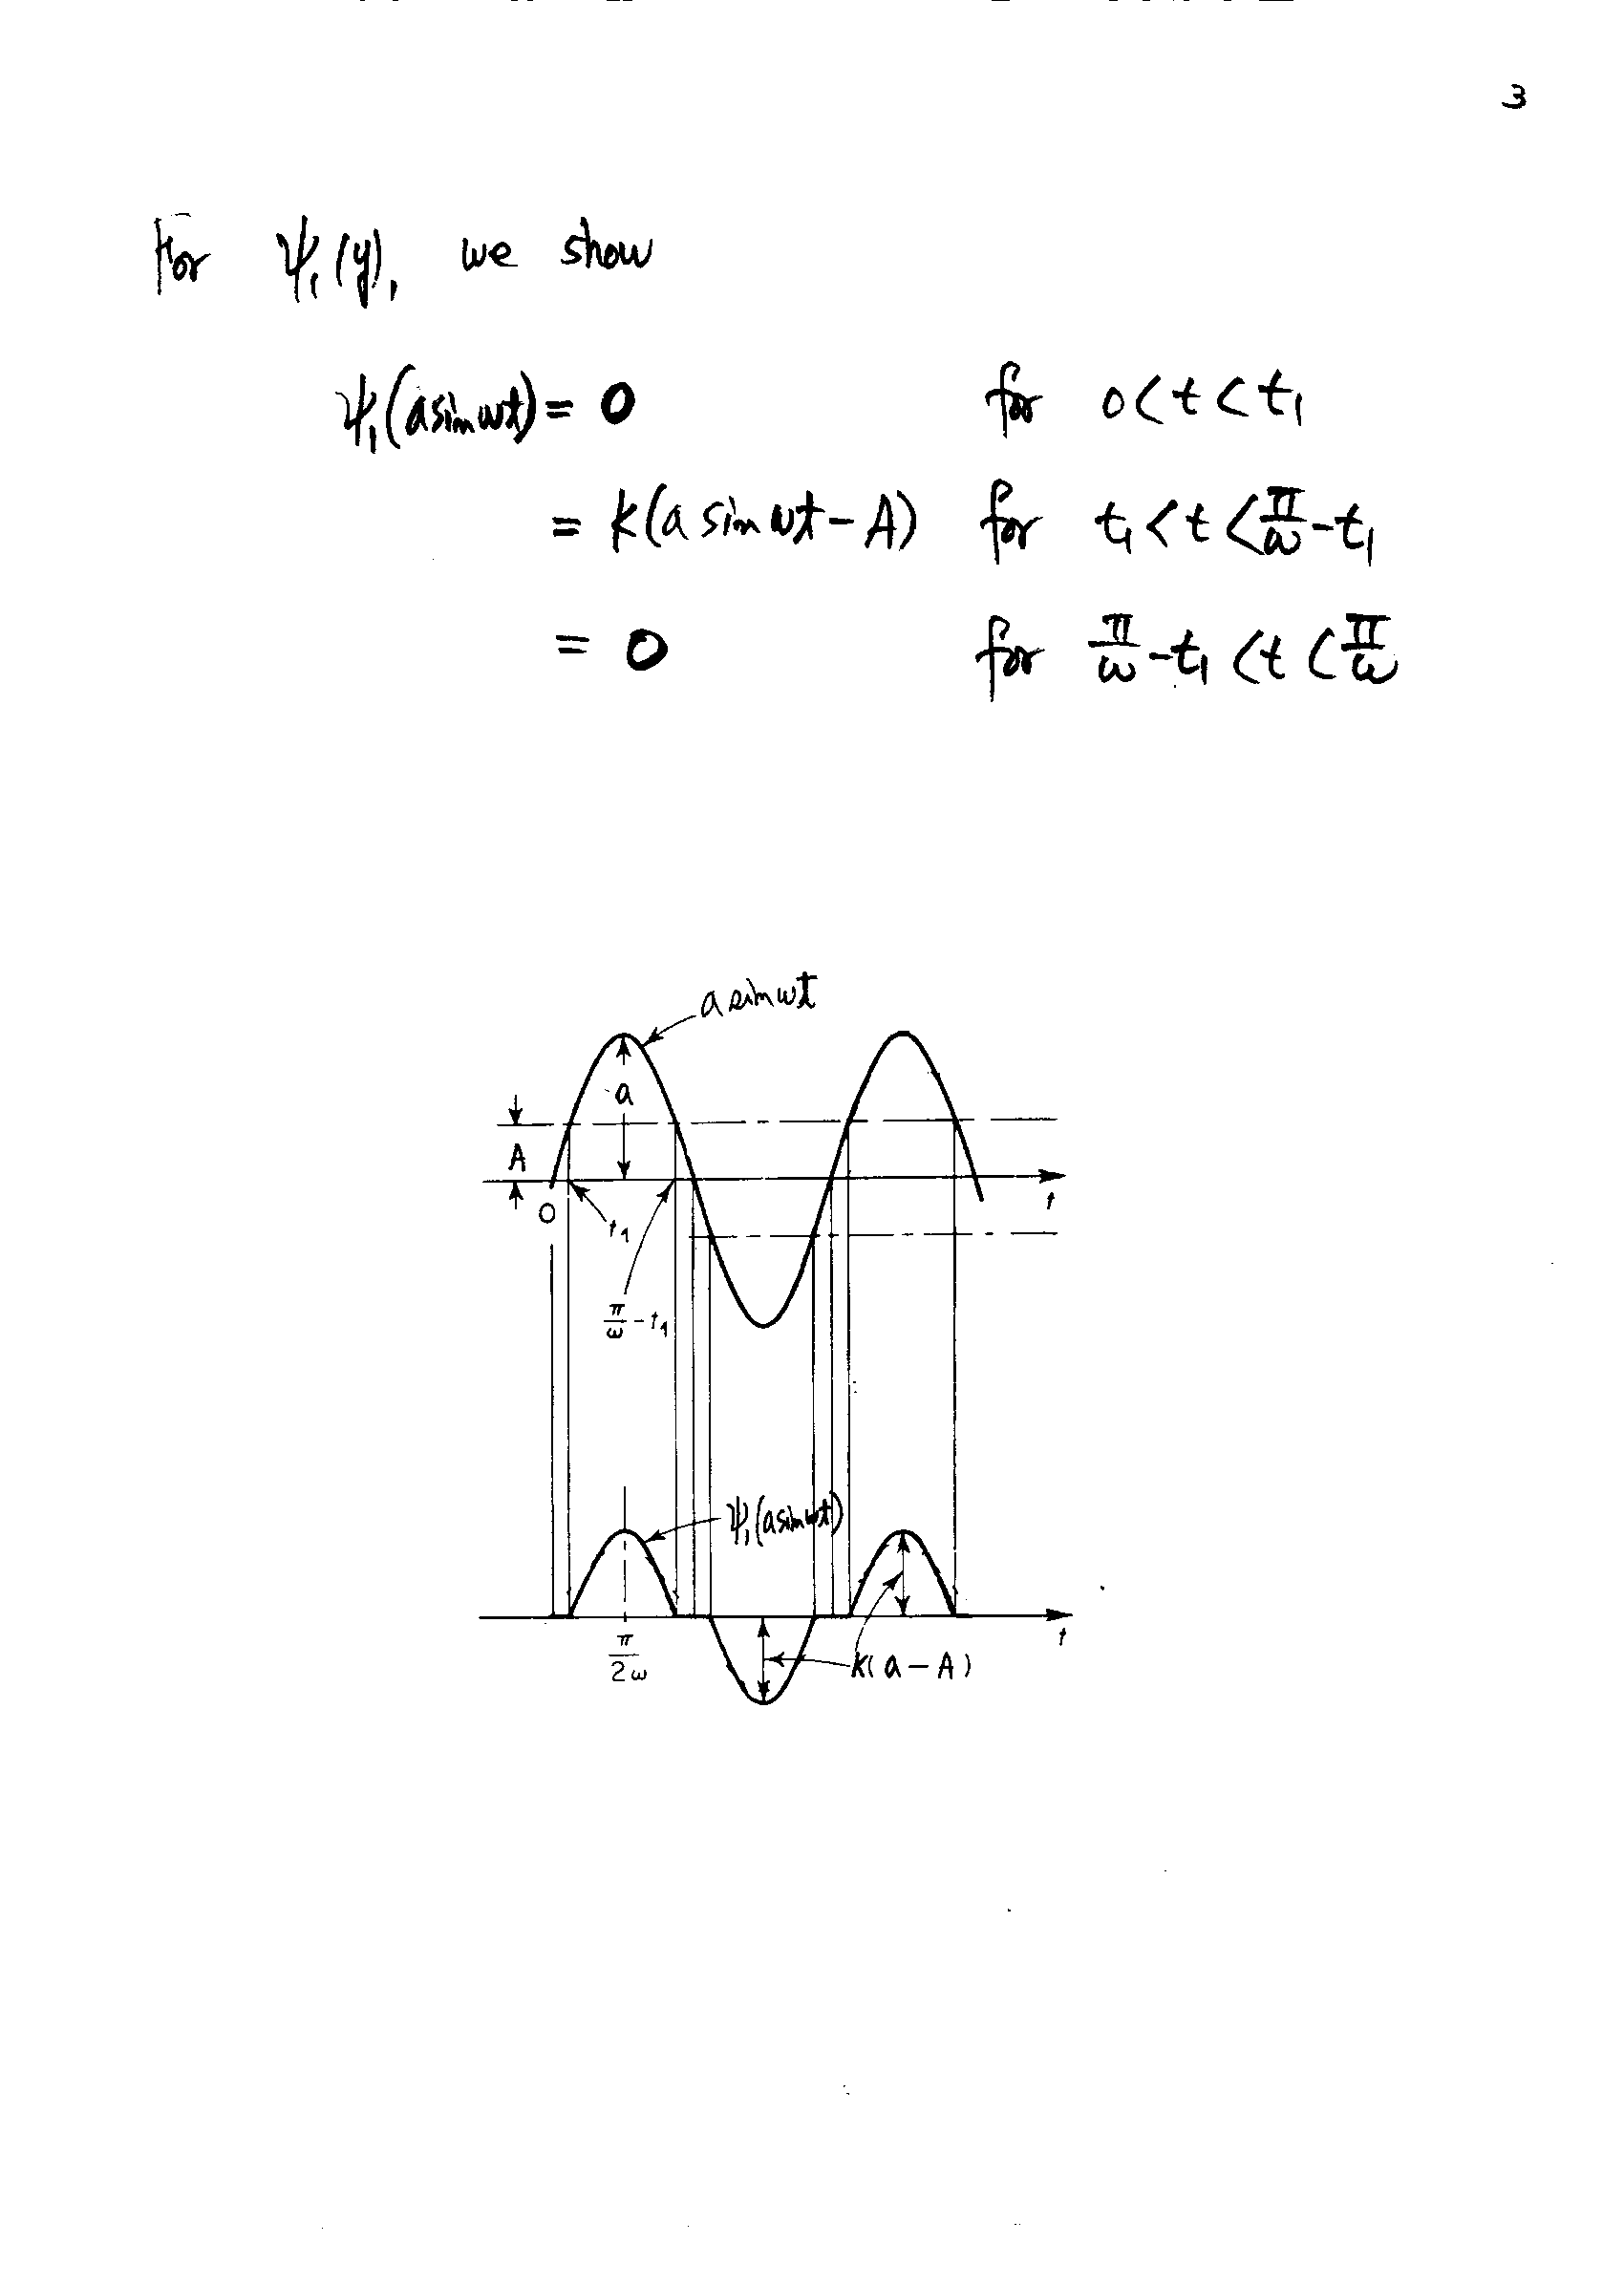 3
For ψ₁(y), we show
ψ₁(a sin ωt) = 0 for 0 < t < t₁
= k(a sin ωt − A) for t₁ < t < π/ω − t₁
= 0 for π/ω − t₁ < t < π/ω
a sin ωt
a
A
0
t₁
t
π/ω − t₁
ψ₁(a sin ωt)
t
π/2ω
k(a − A)